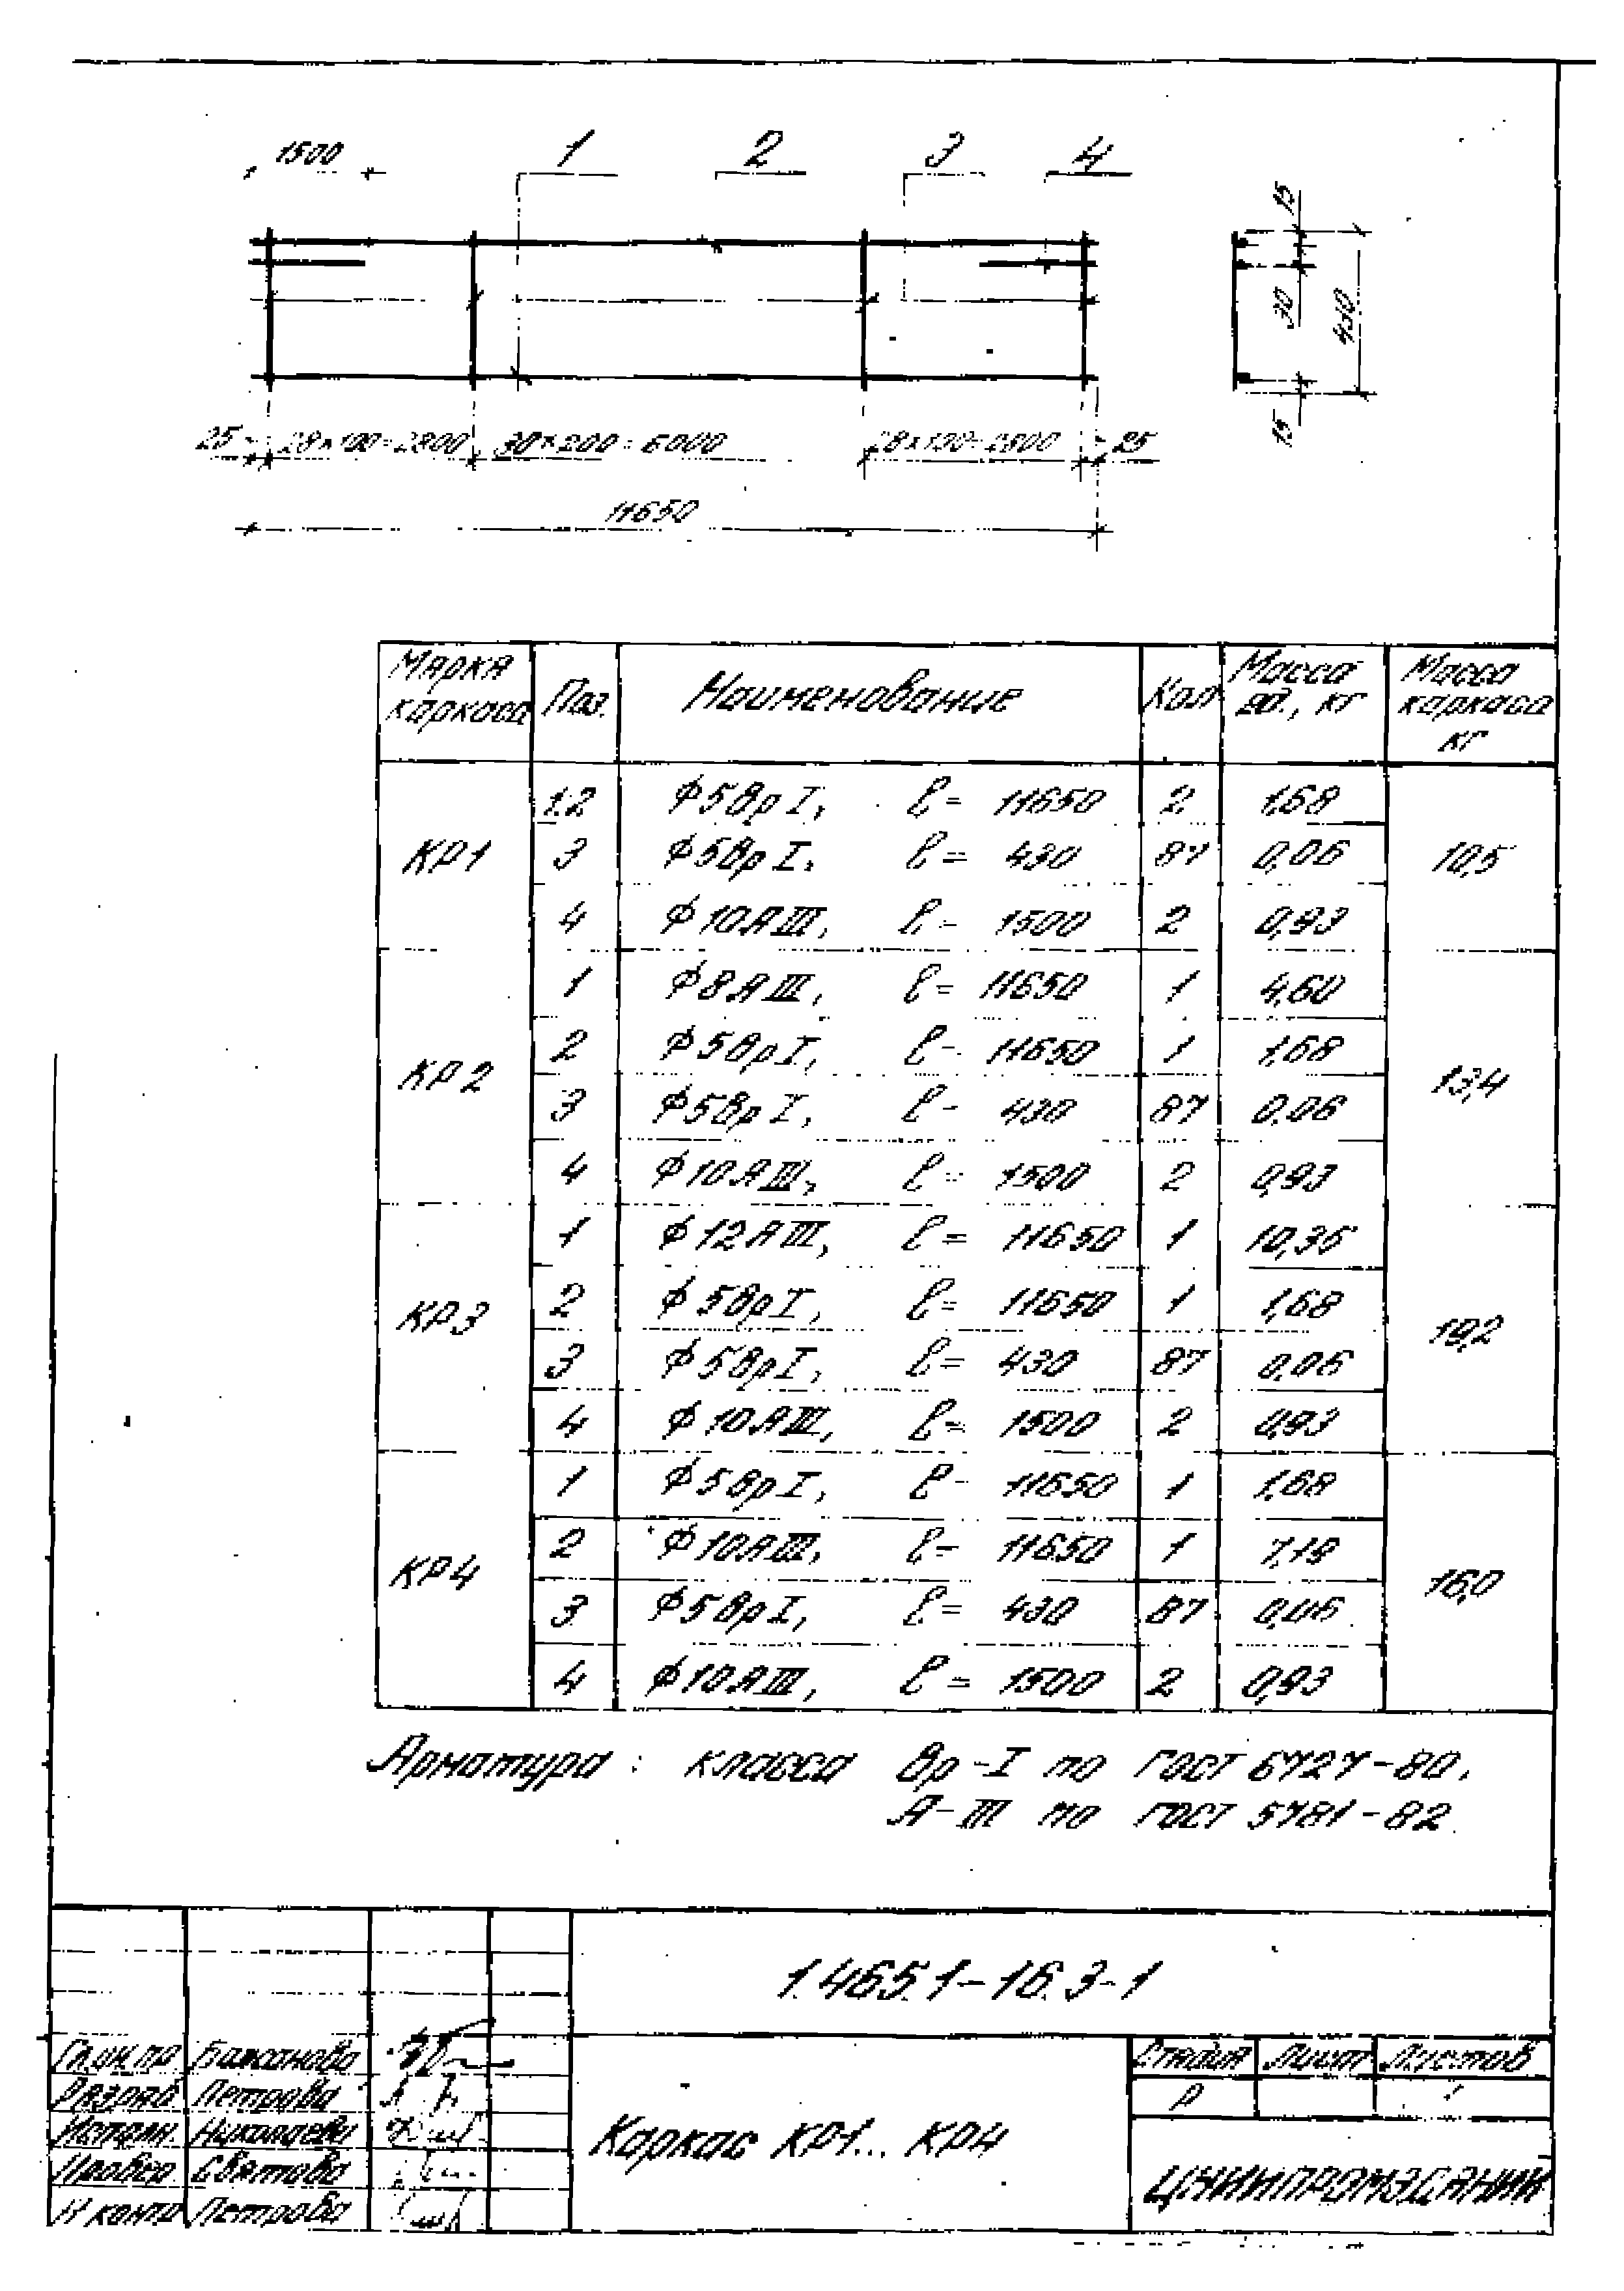 1500 1 2 3 4
15
30
430
15
25 28×100=2800 30×200=6000 28×100=2800 25
11650
Марка каркаса Поз. Наименование Кол Масса ед., кг Масса каркаса кг
КР1 1,2 ϕ5ВрI, ℓ= 11650 2 1,68 10,5
3 ϕ5ВрI, ℓ= 430 87 0,06
4 ϕ10АIII, ℓ= 1500 2 0,93
КР2 1 ϕ8АIII, ℓ= 11650 1 4,60 13,4
2 ϕ5ВрI, ℓ= 11650 1 1,68
3 ϕ5ВрI, ℓ= 430 87 0,06
4 ϕ10АIII, ℓ= 1500 2 0,93
КР3 1 ϕ12АIII, ℓ= 11650 1 10,35 19,2
2 ϕ5ВрI, ℓ= 11650 1 1,68
3 ϕ5ВрI, ℓ= 430 87 0,06
4 ϕ10АIII, ℓ= 1500 2 0,93
КР4 1 ϕ5ВрI, ℓ= 11650 1 1,68 16,0
2 ϕ10АIII, ℓ= 11650 1 7,19
3 ϕ5ВрI, ℓ= 430 87 0,06
4 ϕ10АIII, ℓ= 1500 2 0,93
Арматура: класса Вр-I по ГОСТ 6727-80,
А-III по ГОСТ 5781-82
1.465.1-16.3-1
Гл.инж.пр Бажанова
Разраб Петрова
Исполн. Николаева
Провер. Святова
Н контр Петрова
Каркас КР1... КР4
Стадия Лист Листов
Р
ЦНИИПРОМЗДАНИЙ